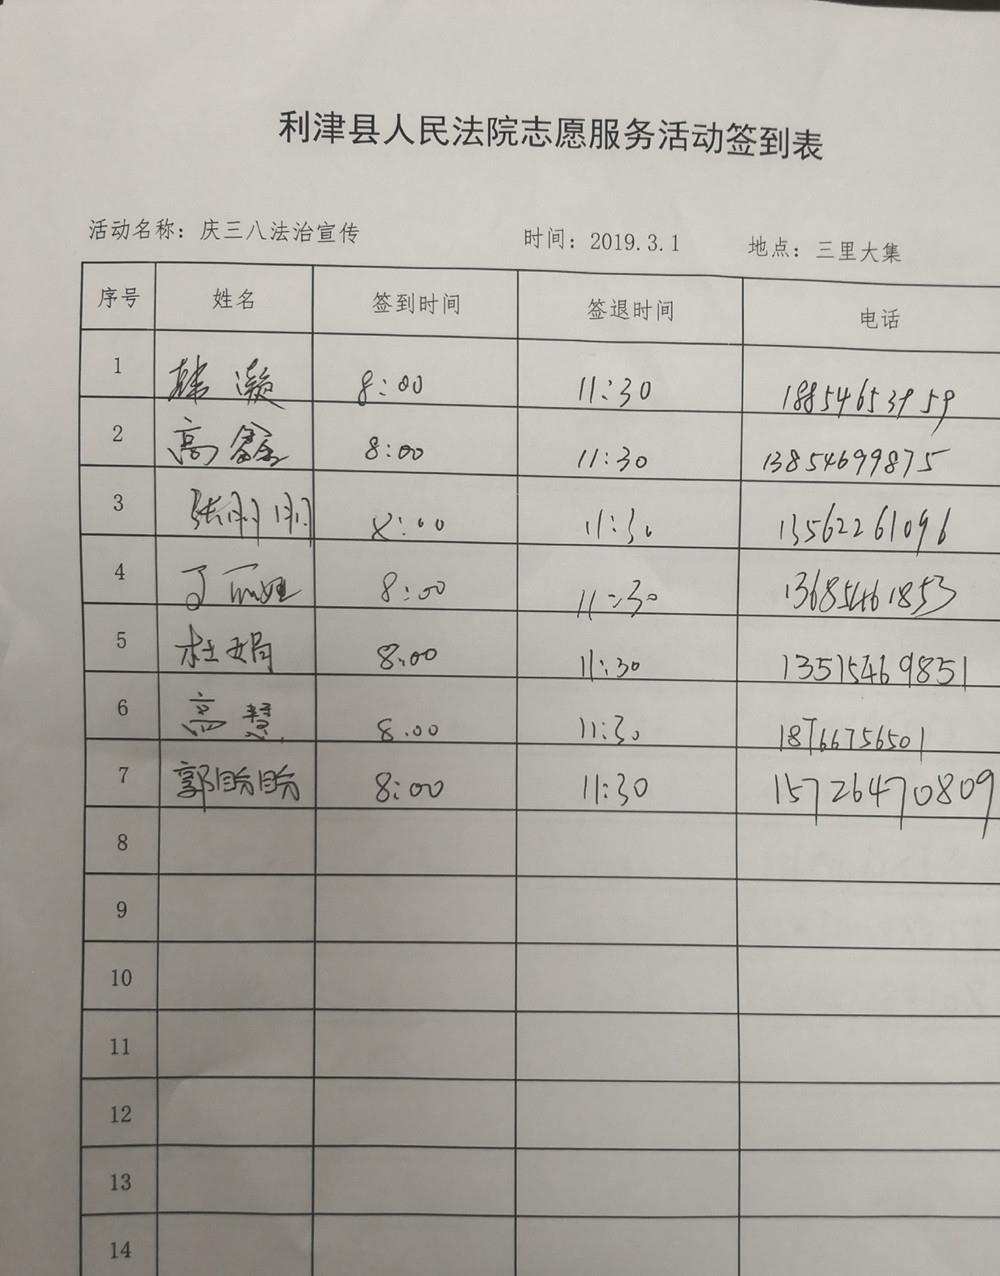 利津县人民法院志愿服务活动签到表
活动名称：庆三八法治宣传 时间：2019.3.1 地点：三里大集
序号 姓名 签到时间 签退时间 电话
1 韩灏 8:00 11:30 18854653959
2 高鑫 8:00 11:30 13854699875
3 张刚刚 8:00 11:30 13562261096
4 丁丽娅 8:00 11:30 13685461853
5 杜娟 8:00 11:30 13515469851
6 高慧 8:00 11:30 18766756501
7 郭盼盼 8:00 11:30 15726470809
8
9
10
11
12
13
14